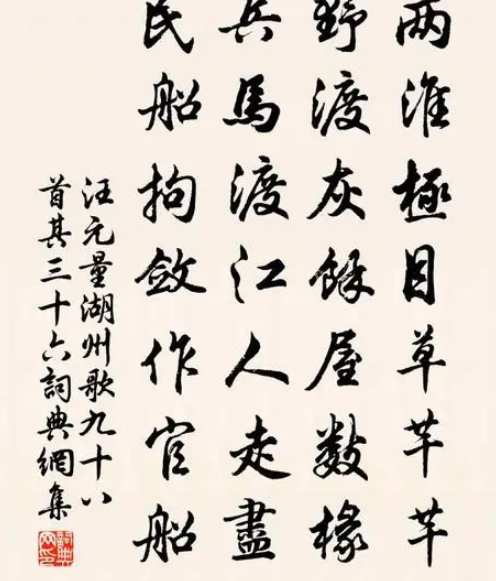 兩淮極目草芊芊
野渡灰餘屋數椽
兵馬渡江人走盡
民船拘斂作官船
汪元量湖州歌九十八
首其三十六詞典網集